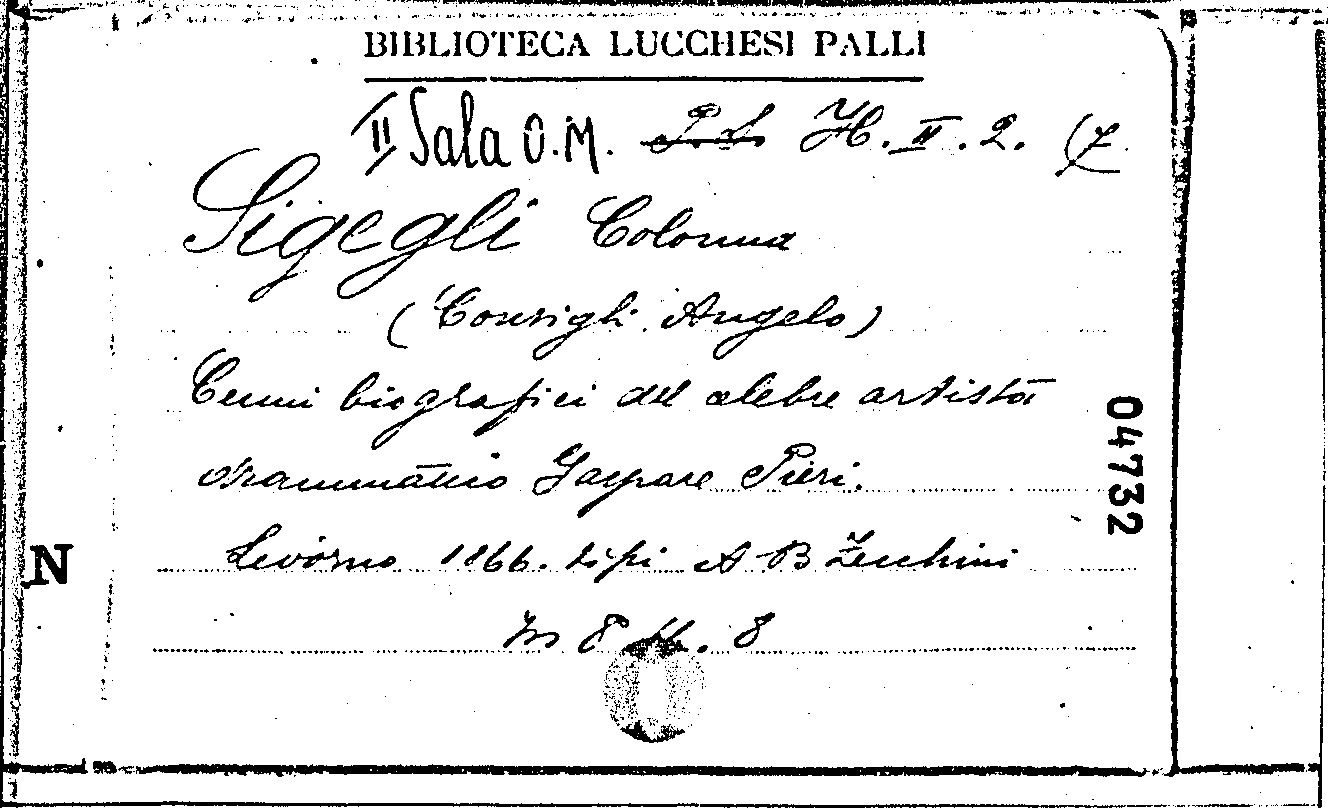 BIBLIOTECA LUCCHESI PALLI
II Sala O.M. P.S. H. II. 2. (7.
Sigegli Colonna
(Consigli Angelo)
Cenni biografici del celebre artista
drammatico Gaspare Pieri.
Livorno 1866. tipi A B Zecchini
In 8 pp. 8
04732
N